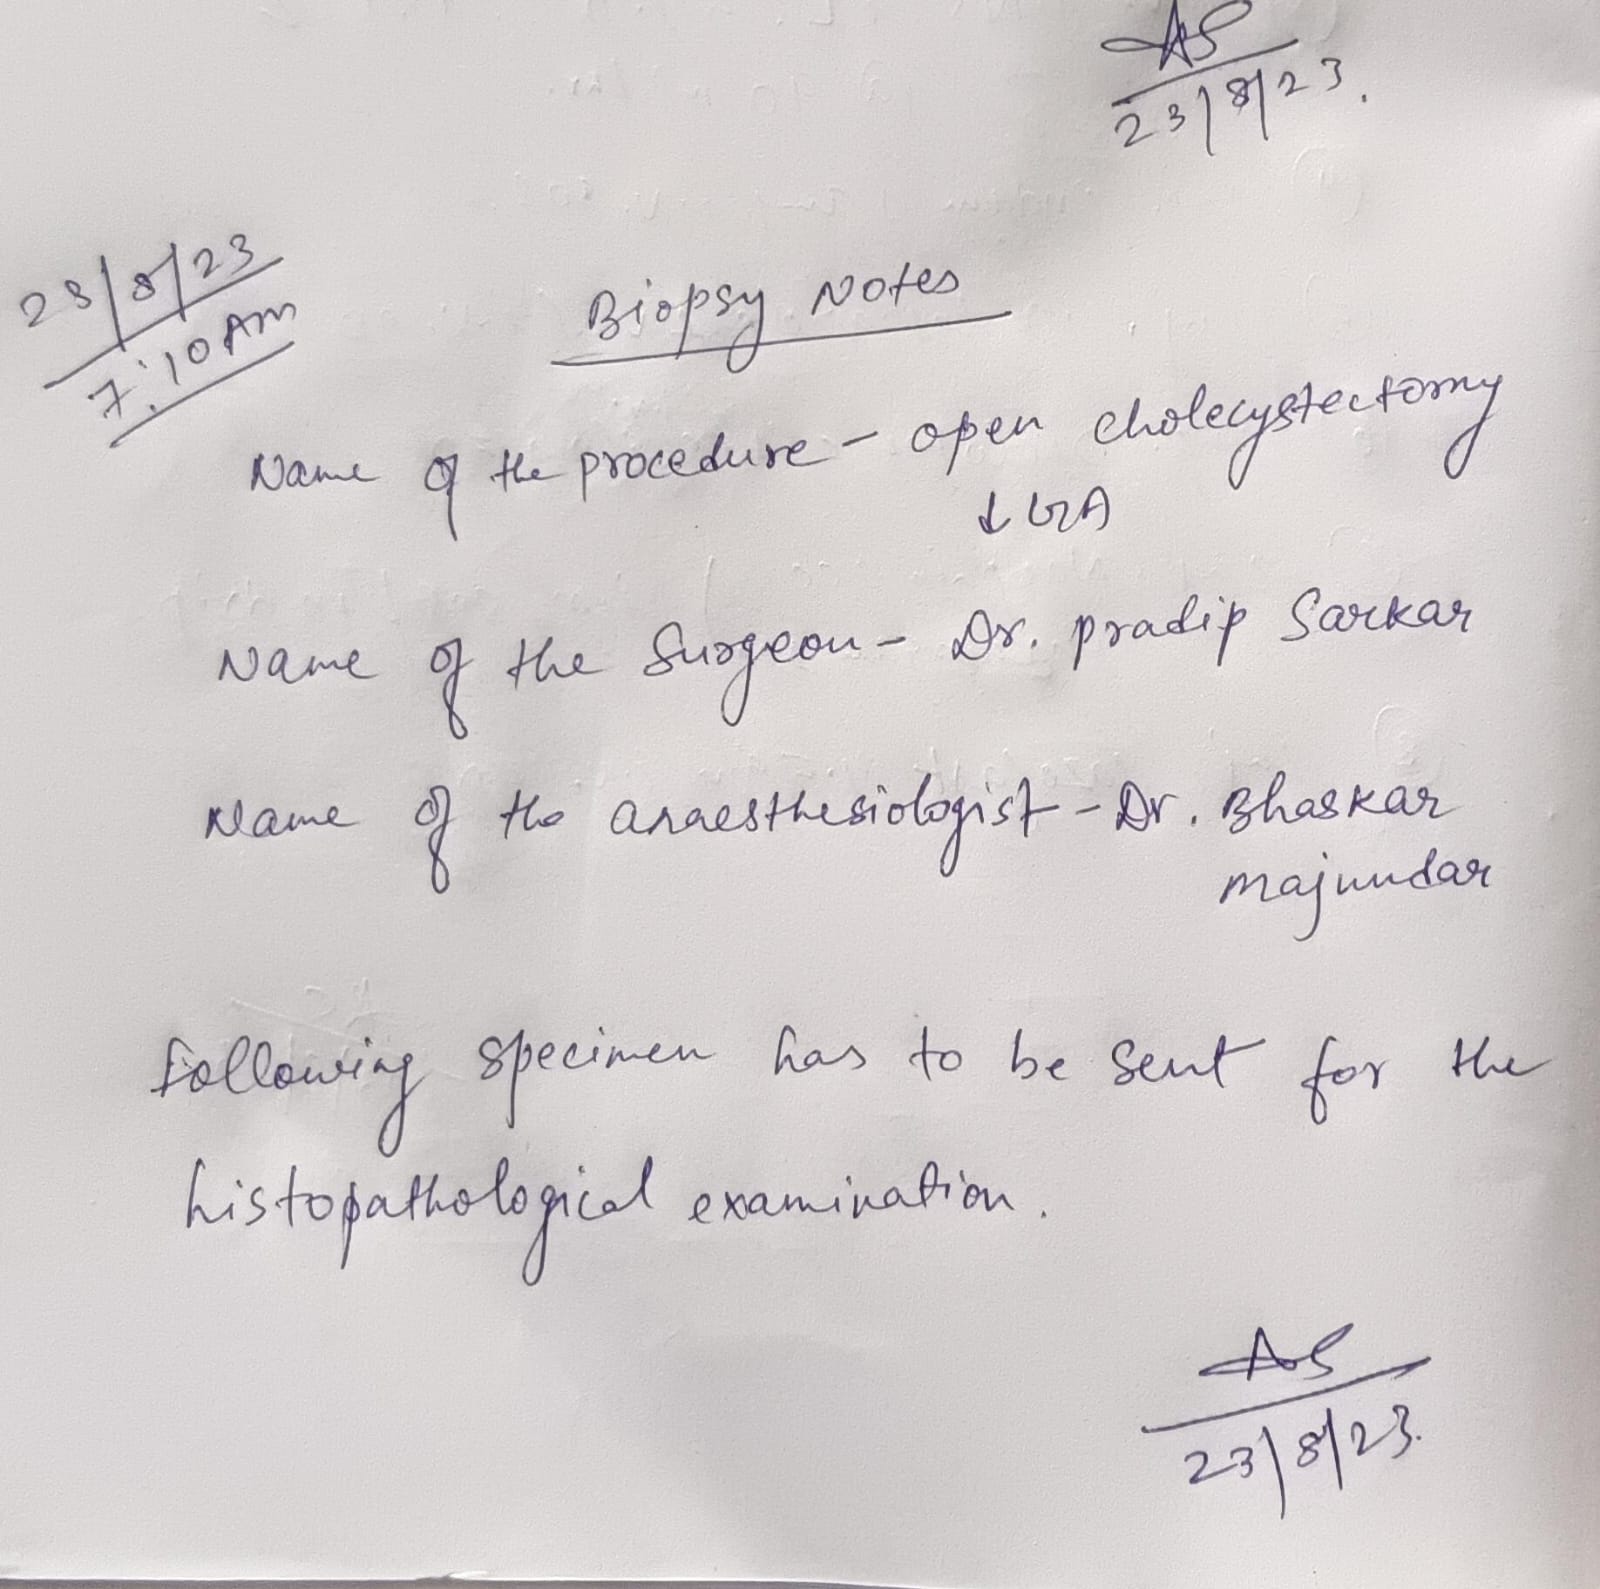 AS
23/8/23.
23/8/23
7:10 AM
Biopsy Notes
Name of the procedure - open cholecystectomy
↓ GA
Name of the Surgeon - Dr. pradip Sarkar
Name of the anaesthesiologist - Dr. Bhaskar
majumdar
Following specimen has to be sent for the
histopathological examination.
AS
23/8/23.